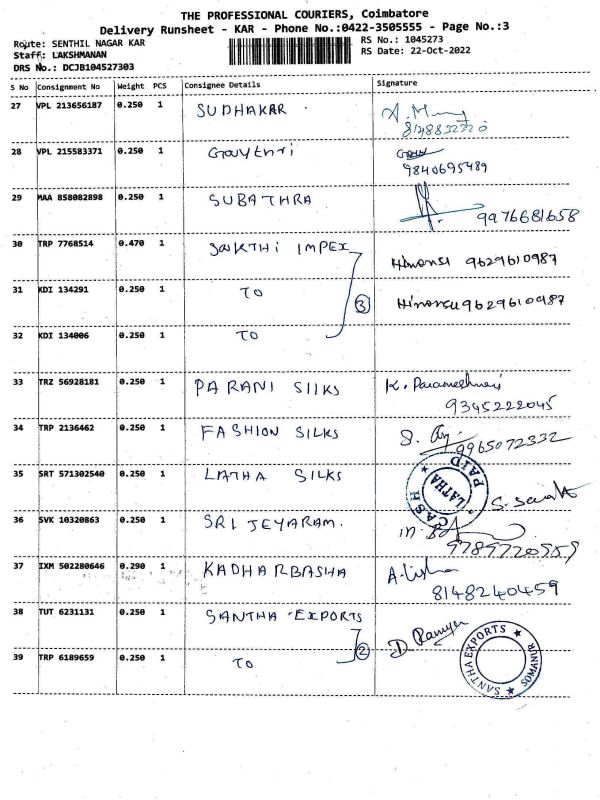 THE PROFESSIONAL COURIERS, Coimbatore
Delivery Runsheet - KAR - Phone No.:0422-3505555 - Page No.:3
Route: SENTHIL NAGAR KAR
RS No.: 1045273
Staff: LAKSHMANAN
RS Date: 22-Oct-2022
DRS No.: DCJB104527303
S No Consignment No Weight PCS Consignee Details Signature
27 VPL 213656187 0.250 1 SUDHAKAR
28 VPL 215583371 0.250 1 Gayethri
9840695489
29 MAA 858082898 0.250 1 SUBATHRA 9976681658
30 TRP 7768514 0.470 1 SAKTHI IMPEX Himansu 9629610987
31 KDI 134291 0.250 1 TO 3 Himansu 9629610987
32 KDI 134006 0.250 1 TO
33 TRZ 56928181 0.250 1 PARANI SIIKS K. Parameshwari
9345222045
34 TRP 2136462 0.250 1 FASHION SILKS
9965072332
35 SRT 571302540 0.250 1 LATHA SILKS LATHA CASH PAID
36 SVK 10320863 0.250 1 SRI JEYARAM.
9789720559
37 IXM 502280646 0.290 1 KADHARBASHA
8148240459
38 TUT 6231131 0.250 1 SANTHA EXPORTS D Ramya
39 TRP 6189659 0.250 1 TO 2 SANTHA EXPORTS SOMANUR